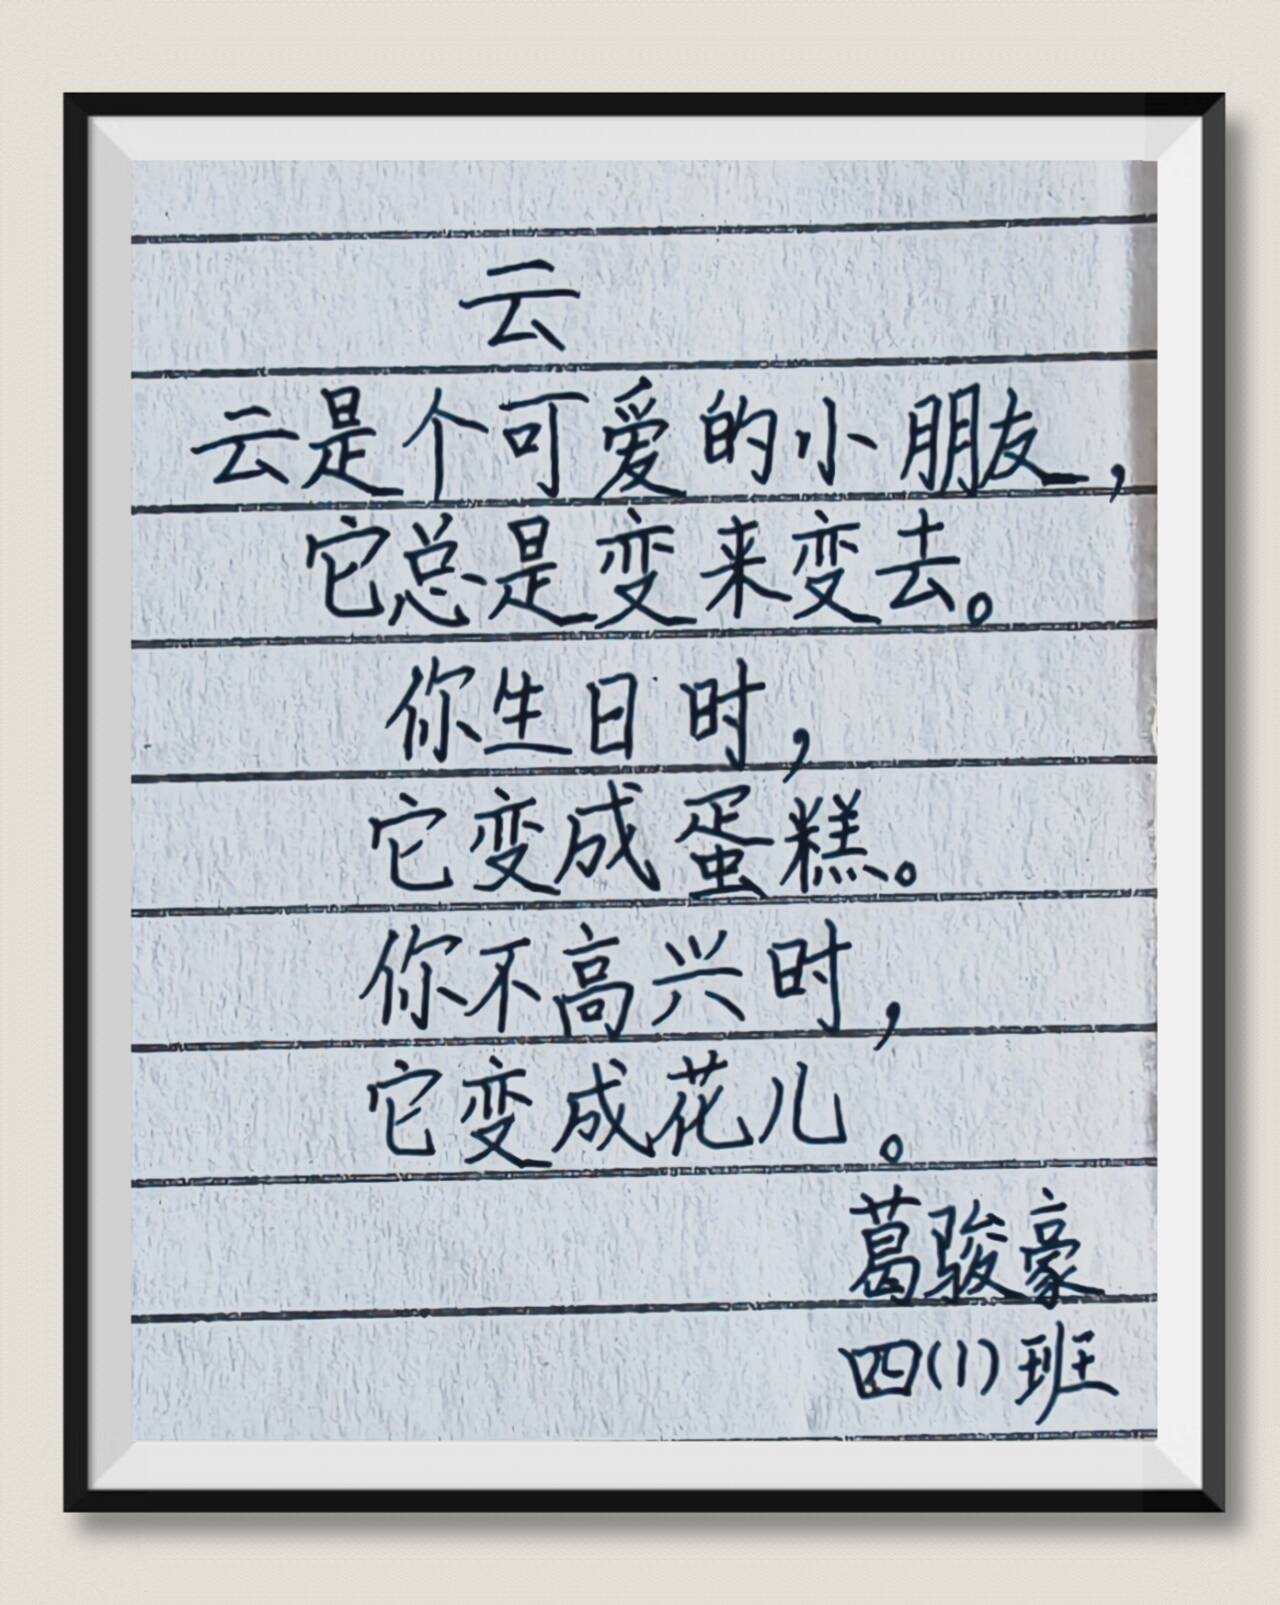 云
云是个可爱的小朋友,
它总是变来变去。
你生日时,
它变成蛋糕。
你不高兴时,
它变成花儿。
葛骏豪
四(1)班